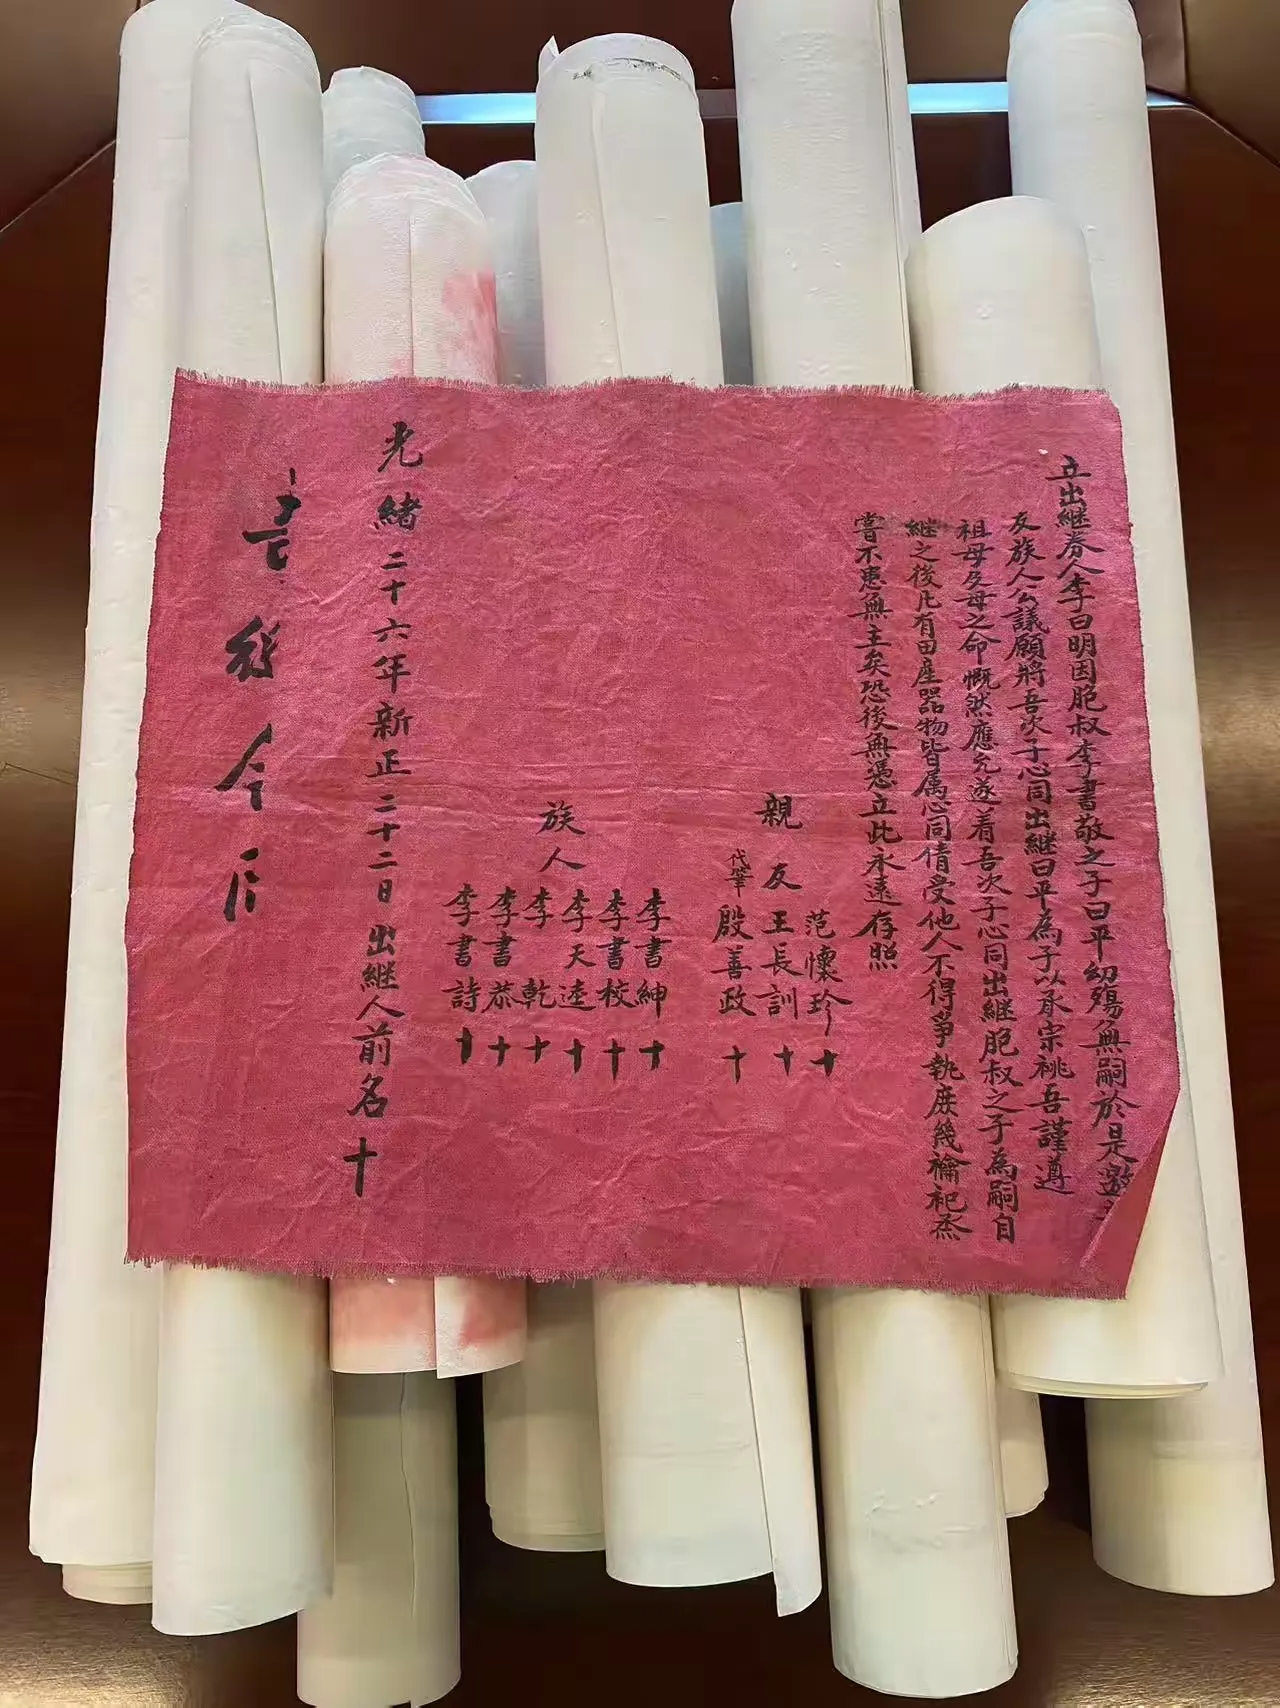 立出継券人李曰明因胞叔李書敬之子曰平幼殤無嗣於是邀
友族人公議願將吾次子心同出継曰平為子以承宗祧吾謹遵
祖母及母之命慨然應允遂着吾次子心同出継胞叔之子為嗣自
継之後凡有田産器物皆属心同倩受他人不得爭執庶幾禴祀烝
嘗不患無主矣恐後無憑立此永遠存照
親友
范懷珍 十
王長訓 十
代筆 殷善政 十
族人
李書紳 十
李書校 十
李天逵 十
李乾 十
李書恭 十
李書詩 十
光緒二十六年新正二十二日出継人前名十